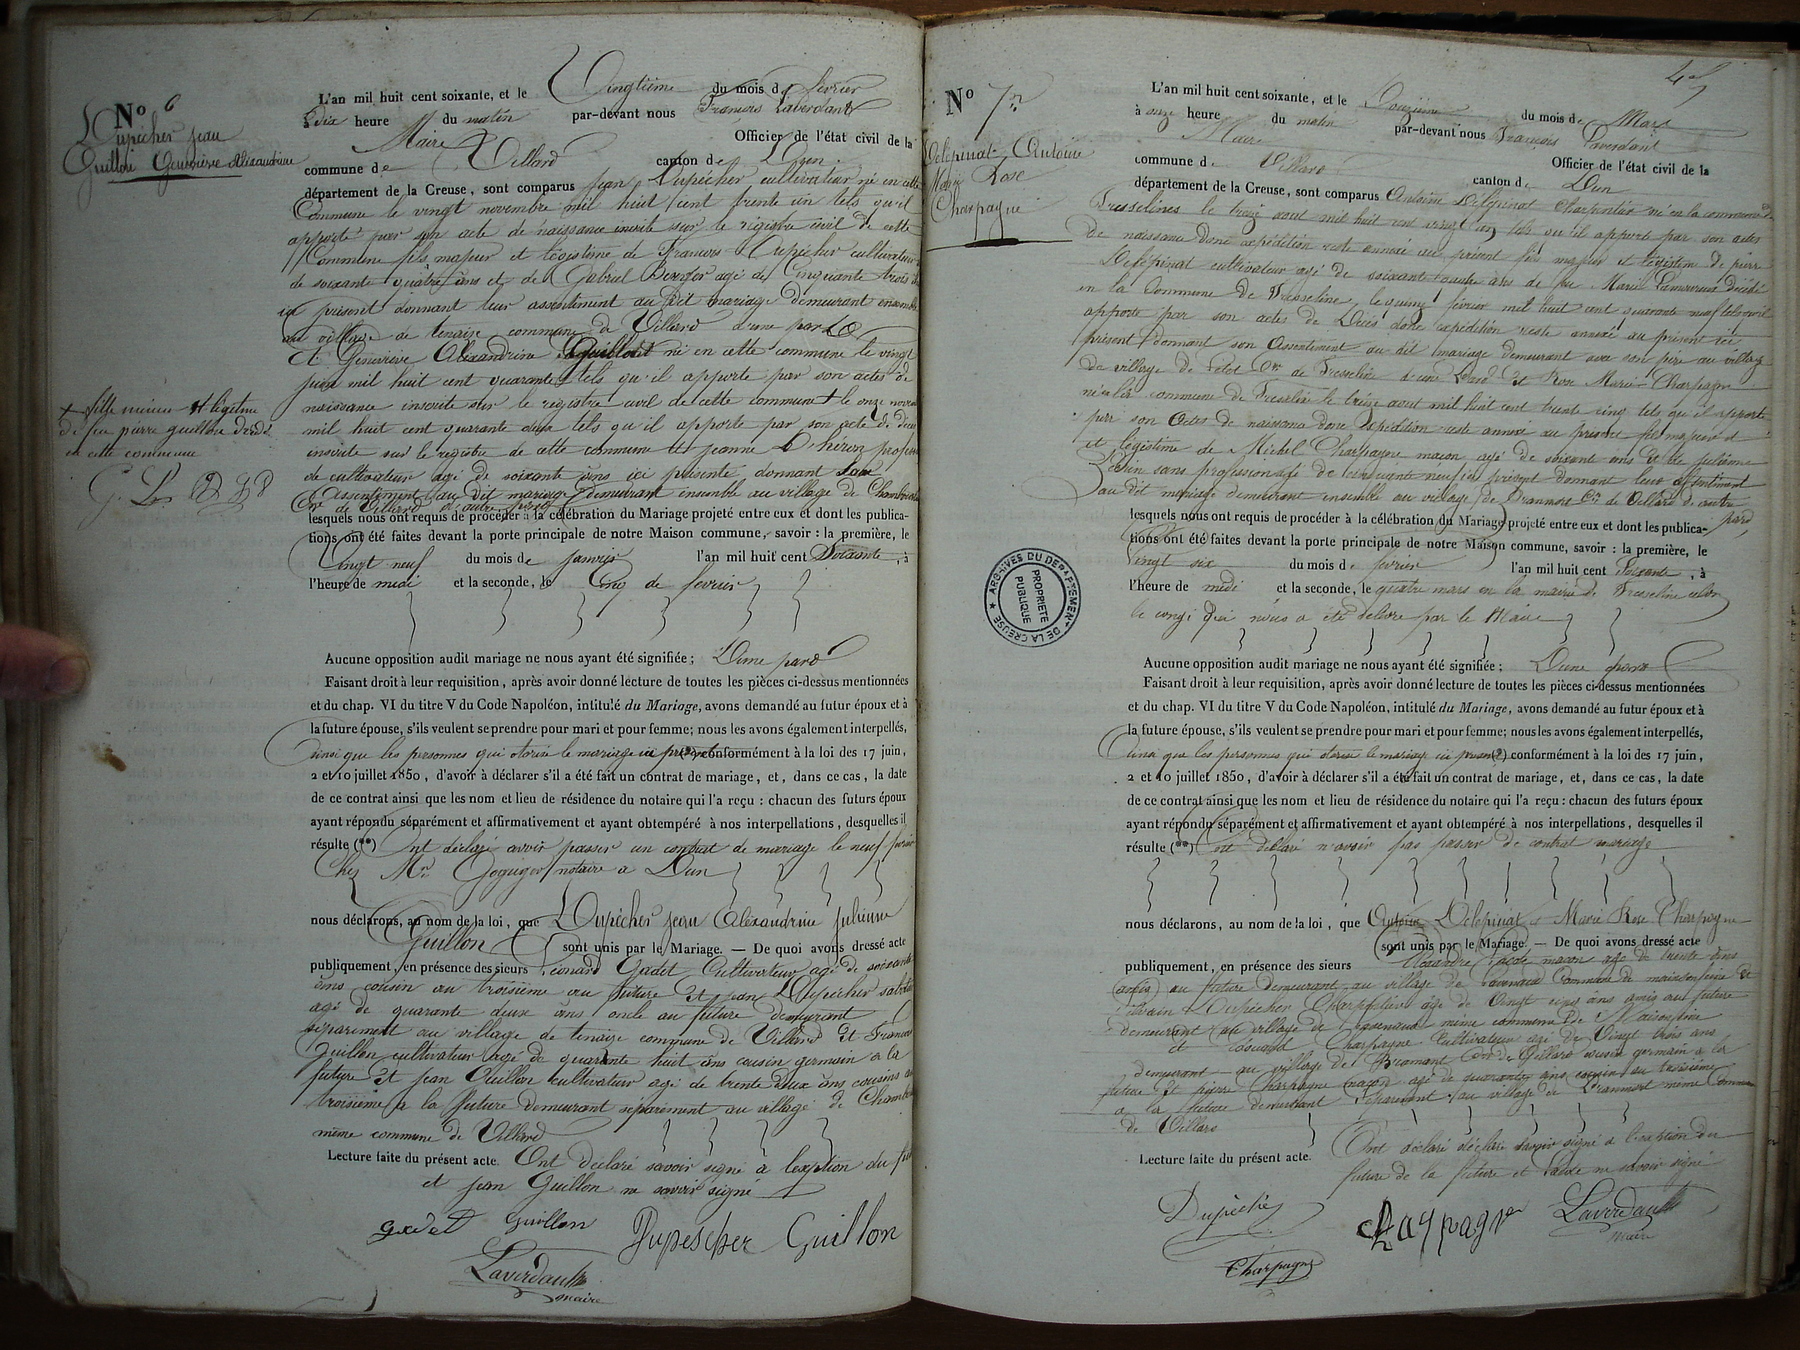 N° 6
Dupêcher Jean
Guillon Geneviève Alexandrine
L'an mil huit cent soixante, et le Vingtième du mois de février
à Dix heure du matin par-devant nous François Laverdant
Maire Officier de l'état civil de la
commune de Villard canton de Dun
département de la Creuse, sont comparus Jean Dupêcher cultivateur né en cette
Commune le vingt novembre mil huit cent trente un tels qu'il
apporte par son acte de naissance inscrite sur le registre civil de cette
Commune fils majeur et légistime de François Dupêcher cultivateur
de soixante quatre ans et de Gabriel agé de Cinquante trois
ici présent donnant leur assentiment au dit mariage demeurant ensemble
au village de tenaise commune de Villard d'une part
et Geneviève Alexandrine Guillon né en cette commune le vingt
juin mil huit cent quarante tels qu'il apporte par son actes de
naissance inscrite sur le registre civil de cette commune + le onze
mil huit cent quarante deux tels qu'il apporte par son acte de
inscrite sur le registre de cette commune et jeanne
de cultivateur agé de soixante ans ici présente donnant son
assentiment au dit mariage demeurant ensemble au village de
Cne de Villard d'autre part
+ fille mineur et légitime
de feu pierre guillon décédé
en cette commune
lesquels nous ont requis de procéder à la célébration du Mariage projeté entre eux et dont les publica-
tions ont été faites devant la porte principale de notre Maison commune, savoir : la première, le
Vingt neuf du mois de janvier l'an mil huit cent Soixante, à
l'heure de midi et la seconde, le Cinq de fevrier
Aucune opposition audit mariage ne nous ayant été signifiée ; Dune pard
Faisant droit à leur requisition, après avoir donné lecture de toutes les pièces ci-dessus mentionnées
et du chap. VI du titre V du Code Napoléon, intitulé du Mariage, avons demandé au futur époux et à
la future épouse, s'ils veulent se prendre pour mari et pour femme; nous les avons également interpellés,
ainsi que les personnes qui otorise le mariage ici conformément à la loi des 17 juin,
2 et 10 juillet 1850, d'avoir à déclarer s'il a été fait un contrat de mariage, et, dans ce cas, la date
de ce contrat ainsi que les nom et lieu de résidence du notaire qui l'a reçu : chacun des futurs époux
ayant répondu séparément et affirmativement et ayant obtempéré à nos interpellations, desquelles il
résulte (**) Ont déclaré avoir passer un contrat de mariage le neuf
Chez Mr notaire a Dun
nous déclarons, au nom de la loi, que Dupêcher jean Alexandrine
Guillon sont unis par le Mariage. — De quoi avons dressé acte
publiquement, en présence des sieurs Léonard Gadet Cultivateur agé de soixante
ans cousin au troisième au future Et jean Dupêcher
agé de quarante deux ans oncle au future demeurant
séparément au village de tenaise commune de Villard Et François
Guillon cultivateur agé de quarante huit ans cousin germain a la
future Et jean Guillon cultivateur agé de trente deux ans cousins au
troisième a la future demeurant séparément au village de
même commune de Villard
Lecture faite du présent acte. Ont declaré savoir signé a lexption du
et jean Guillon ne savoir signé
gadet Guillon Dupescher Guillon
Laverdant
maire
N° 7
Delépinat Antoine
Marie Rose
Charpagne
L'an mil huit cent soixante, et le Douzième du mois de Mars
à onze heure du matin par-devant nous François Laverdant
Maire Officier de l'état civil de la
commune de Villard canton de Dun
département de la Creuse, sont comparus Antoine Delépinat Charpentier né en la commune de
Fresselines le treize aout mil huit cent vingt tels qu'il apporte par son actes
de naissance donc expédition reste annexé au présent fils majeur et légistime de pierre
Delépinat cultivateur agé de soixante ans de feu Marie Lamoureux Décédé
en la Commune de Fresseline, le février mil huit cent quarante neuf
apporte par son actes de Décès donc expédition reste annexé au présent ici
présent donnant son Assentement au dit mariage demeurant avec son père au village
de Fresseline d'une part Et Rose Marie Charpagne
né en la commune de Fresseline le treize aout mil huit cent trente cinq tels qu'il apporte
par son Actes de naissance donc expédition reste annexé au présent majeur et
et légistime de Michel Charpagne maçon agé de soixant ans et de julienne
sans profession agé de neuf ici présent donnant leur assentiment
au dit mariage demeurant ensemble au village de Cne de Villard de autre
pard,
lesquels nous ont requis de procéder à la célébration du Mariage projeté entre eux et dont les publica-
tions ont été faites devant la porte principale de notre Maison commune, savoir : la première, le
Vingt six du mois de février l'an mil huit cent Soixante, à
l'heure de midi et la seconde, le quatre mars en la mairie de Fresseline selon
le congi qui nous a été délivré par le Maire
ARCHIVES DU DÉPARTEMENT DE LA CREUSE
PROPRIÉTÉ PUBLIQUE
Aucune opposition audit mariage ne nous ayant été signifiée ; Dune part
Faisant droit à leur requisition, après avoir donné lecture de toutes les pièces ci-dessus mentionnées
et du chap. VI du titre V du Code Napoléon, intitulé du Mariage, avons demandé au futur époux et à
la future épouse, s'ils veulent se prendre pour mari et pour femme; nous les avons également interpellés,
ainsi que les personnes qui otorise le mariage ici conformément à la loi des 17 juin,
2 et 10 juillet 1850, d'avoir à déclarer s'il a été fait un contrat de mariage, et, dans ce cas, la date
de ce contrat ainsi que les nom et lieu de résidence du notaire qui l'a reçu : chacun des futurs époux
ayant répondu séparément et affirmativement et ayant obtempéré à nos interpellations, desquelles il
résulte (**) Ont déclaré n'avoir pas passer de contrat mariage
nous déclarons, au nom de la loi, que Antoine Delépinat & Marie Rose Charpagne
sont unis par le Mariage. — De quoi avons dressé acte
publiquement, en présence des sieurs Alexandre maçon agé de trente ans
amis au future demeurant au village de Commune de maisonfeine Et
Silvain Dupêcher Charpentier agé de Vingt ans amis au future
demeurant au village de même commune de Maisonfeine
et Charpagne Cultivateur agé de Vingt trois ans
demeurant au village de Cne de Villard cousin germain a la
future Et pierre Charpagne maçon agé de quarante ans cousin au troisième
a la future demeurant séparément au village de même Commune
de Villard
Lecture faite du présent acte. Ont déclaré déclaré savoir signé a lexption du
future de la future et ne savoir signé
Dupêché Charpagne Laverdant
maire
Charpagne